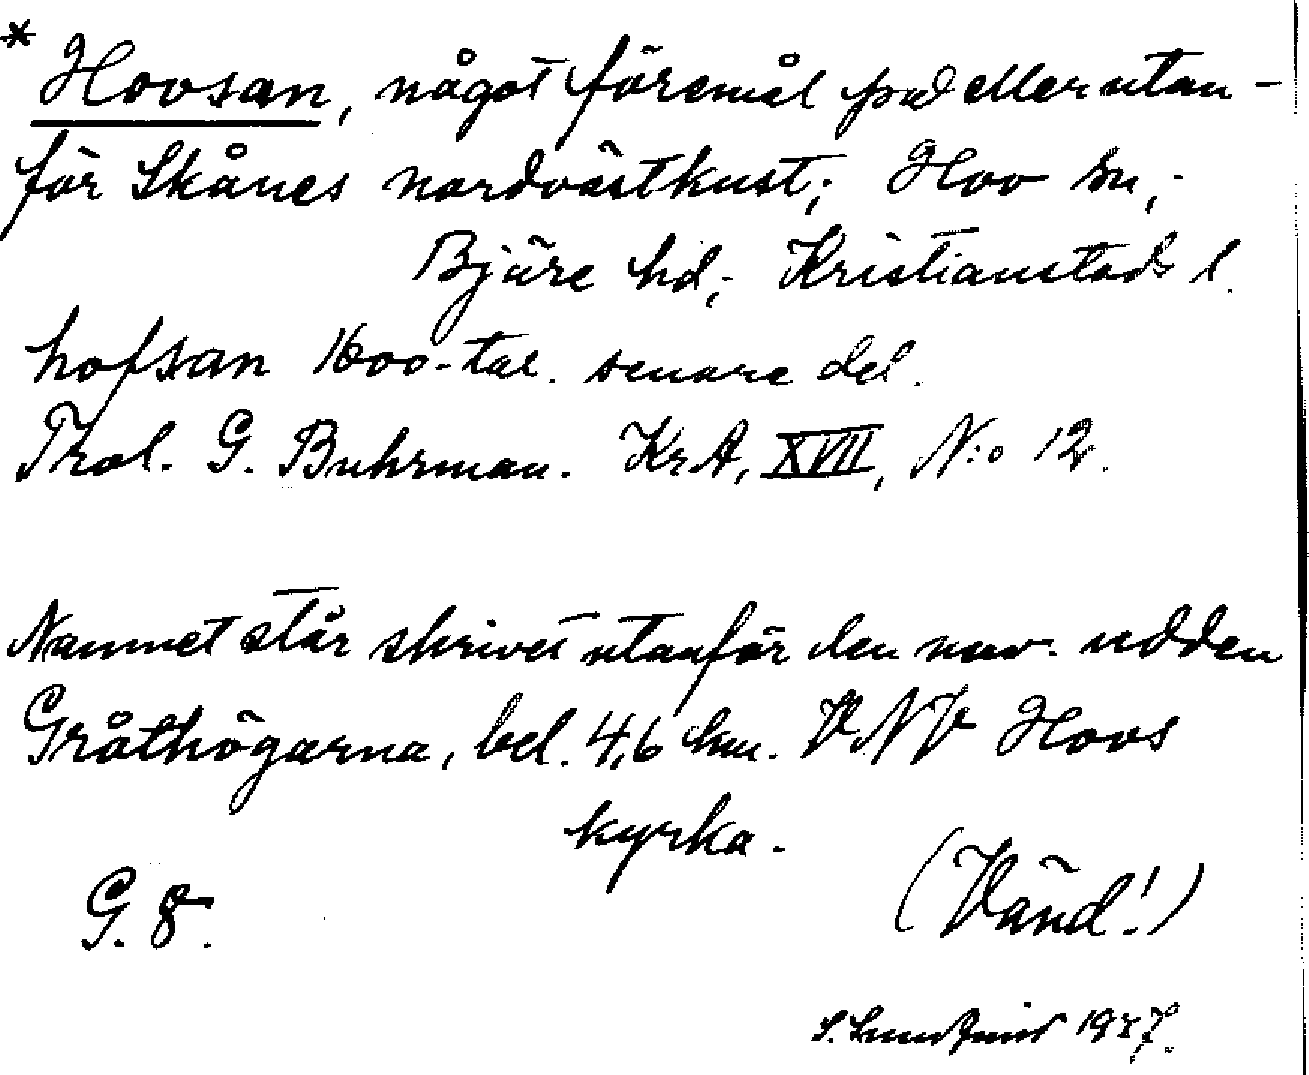 * Hovsan, något föremål på eller utan-
för Skånes nordvästkust; Hov sn,
Bjäre hd, Kristianstads l.
hofsan 1600-tal. senare del.
Trol. G. Buhrman. KrA, XVII, N:o 12.
Namnet står skrivet utanför den nuv. udden
Gråthögarna, bel. 4,6 km. VNV Hovs
kyrka.
(Vänd!)
G. 8.